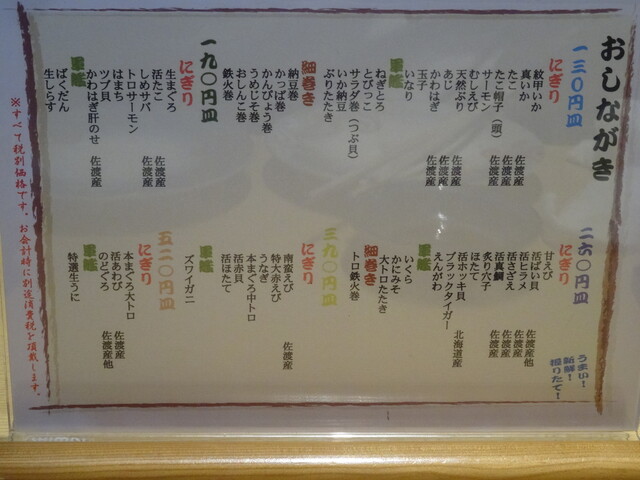 おしながき
一三〇円皿
にぎり
紋甲いか
真いか 佐渡産
たこ 佐渡産
たこ帽子(頭) 佐渡産
サーモン
むしえび
天然ぶり 佐渡産
あじ 佐渡産
かわはぎ 佐渡産
玉子
いなり
軍艦
ねぎとろ
とびっこ
サラダ巻(つぶ貝)
いか納豆
ぶりたたき
細巻き
納豆巻
かっぱ巻
かんぴょう巻
うめじそ巻
おしんこ巻
鉄火巻
一九〇円皿
にぎり
生まぐろ
活たこ 佐渡産
しめサバ 佐渡産
トロサーモン
はまち
ツブ貝
かわはぎ肝のせ 佐渡産
軍艦
ばくだん
生しらす
二六〇円皿
にぎり
甘えび
活ばい貝 佐渡産他
活ヒラメ 佐渡産
活さざえ 佐渡産
活真鯛 佐渡産
炙り穴子
ほたて
活ホッキ貝 北海道産
ブラックタイガー
えんがわ
軍艦
いくら
かにみそ
大トロたたき
細巻き
トロ鉄火巻
三九〇円皿
にぎり
南蛮えび 佐渡産
特大赤えび
うなぎ
本まぐろ中トロ
活赤貝
活ほたて
軍艦
ズワイガニ
五二〇円皿
にぎり
本まぐろ大トロ
活あわび 佐渡産
のどぐろ 佐渡産他
軍艦
特選生うに
うまい!
新鮮!
握りたて!
※すべて税別価格です。お会計時に別途消費税を頂戴します。